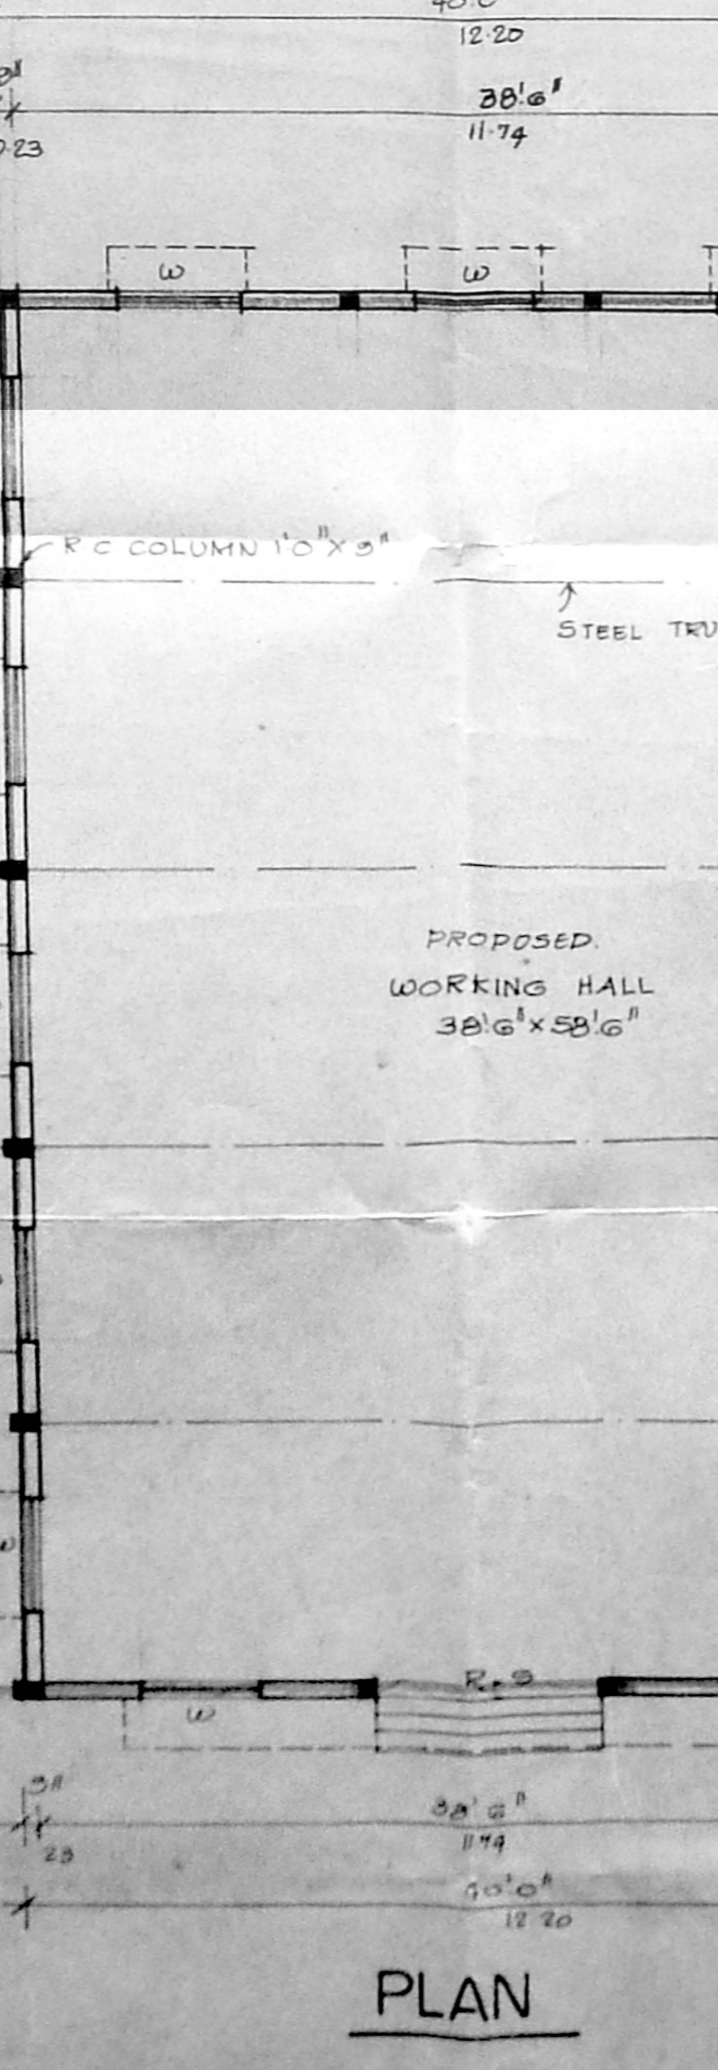 12.20
38'.6"
11.74
0.23
W
W
R C COLUMN 1'0" X 9"
STEEL TRU
PROPOSED.
WORKING HALL
38'.6" X 58'.6"
W
R.S
W
9"
38'6"
11.74
23
40'0"
12 20
PLAN